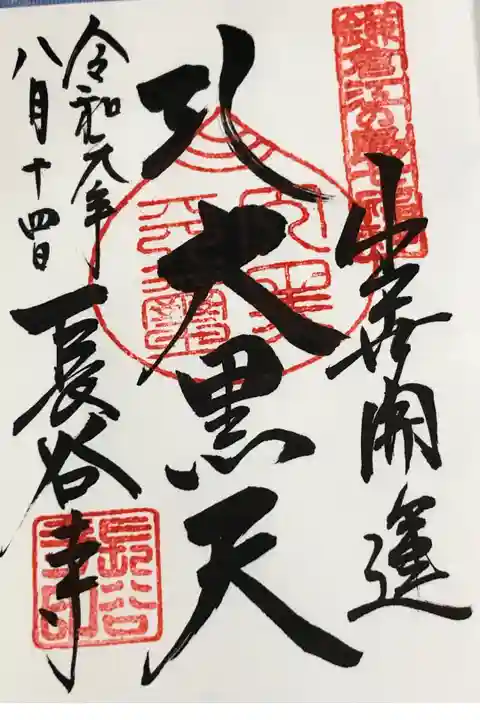 鎌倉江の島七福神
出世開運
大黒天
令和元年
八月十四日
長谷寺
長谷寺印